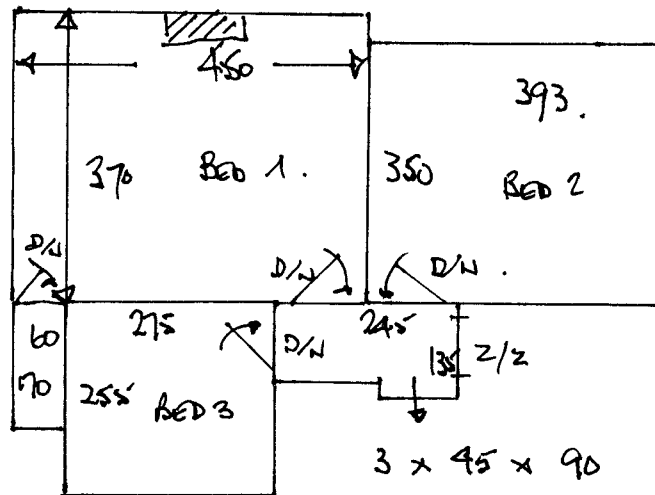 450
393.
370
BED 1.
350
BED 2
D/N
D/N
D/N.
60
275
245
D/N
135
2/2
70
255
BED 3
3 x 45 x 90